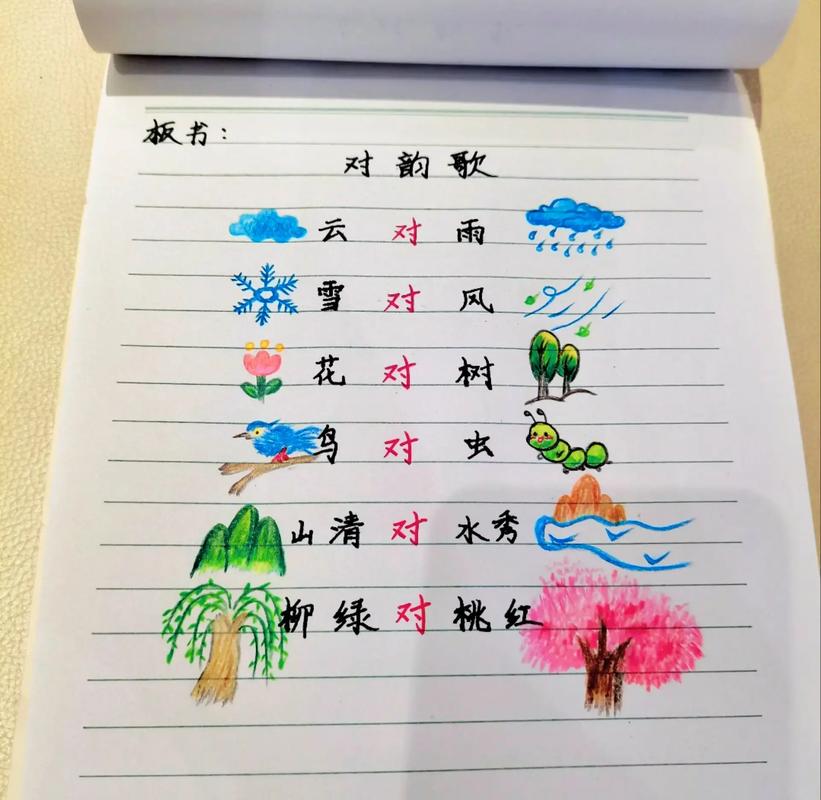 板书:
对韵歌
云 对 雨
雪 对 风
花 对 树
鸟 对 虫
山清 对 水秀
柳绿 对 桃红